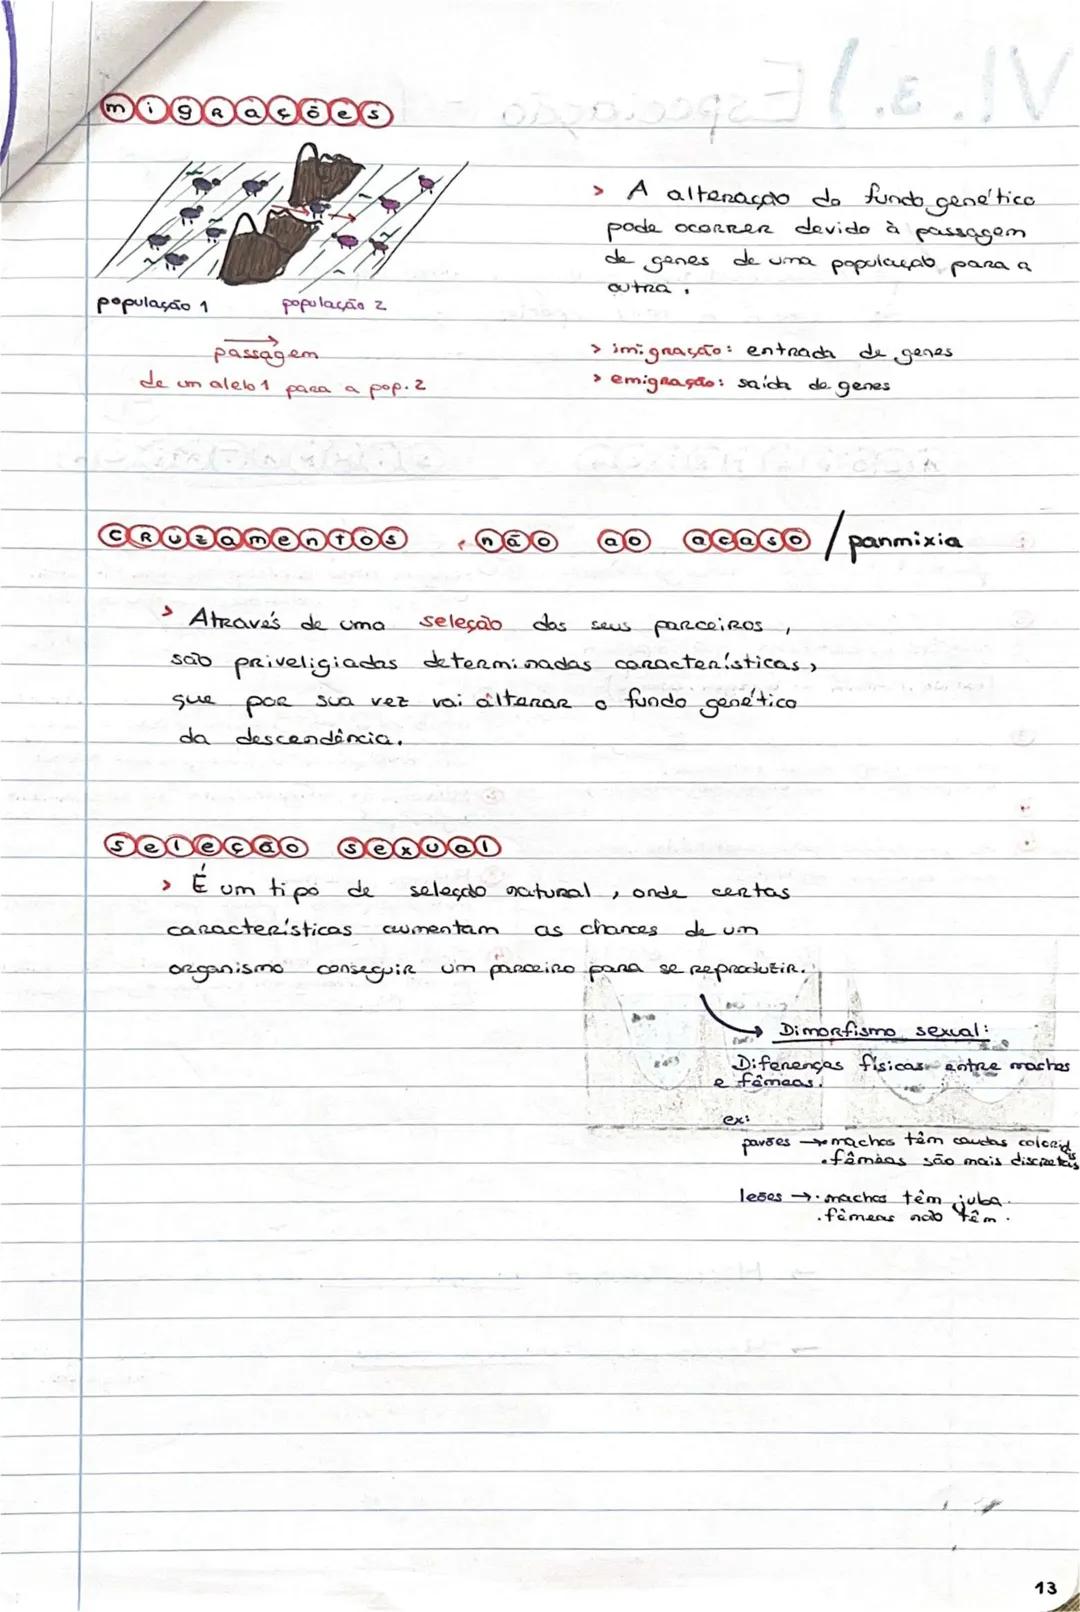 migrações
população 1
população 2
passagem
de um alelo 1 para a pop. 2
> A alteração do fundo genético
pode ocorrer devido à passagem
de genes de uma população para a
outra.
> imigração: entrada de genes
> emigração: saída de genes
cruzamentos não ao acaso / panmixia
> Através de uma seleção dos seus parceiros,
são priveligiadas determinadas características,
que por sua vez vai alterar o fundo genético
da descendência.
seleção sexual
> É um tipo de seleção natural, onde certas
características aumentam as chances de um
organismo conseguir um parceiro para se reproduzir.
Dimorfismo sexual:
Diferenças físicas entre machos
e fêmeas.
ex:
pavões → machos têm caudas coloridas
. fêmeas são mais discretas
leões → . machos têm juba.
. fêmeas não têm.
13